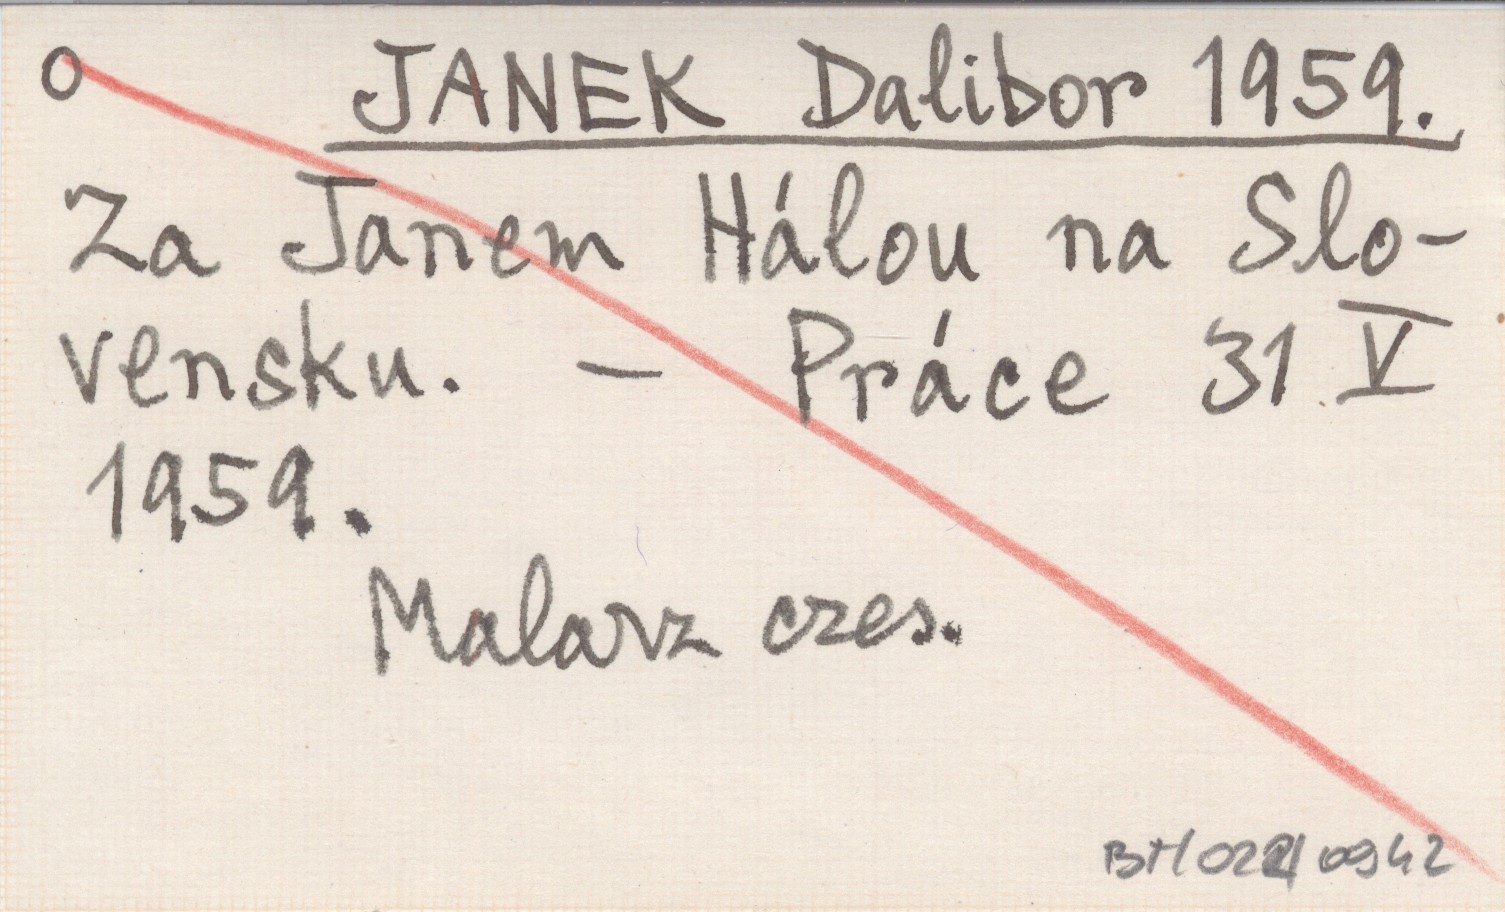 O JANEK Dalibor 1959.
Za Janem Hálou na Slo-
vensku. — Práce 31 V
1959.
Malarz czes.
BH/022/0942